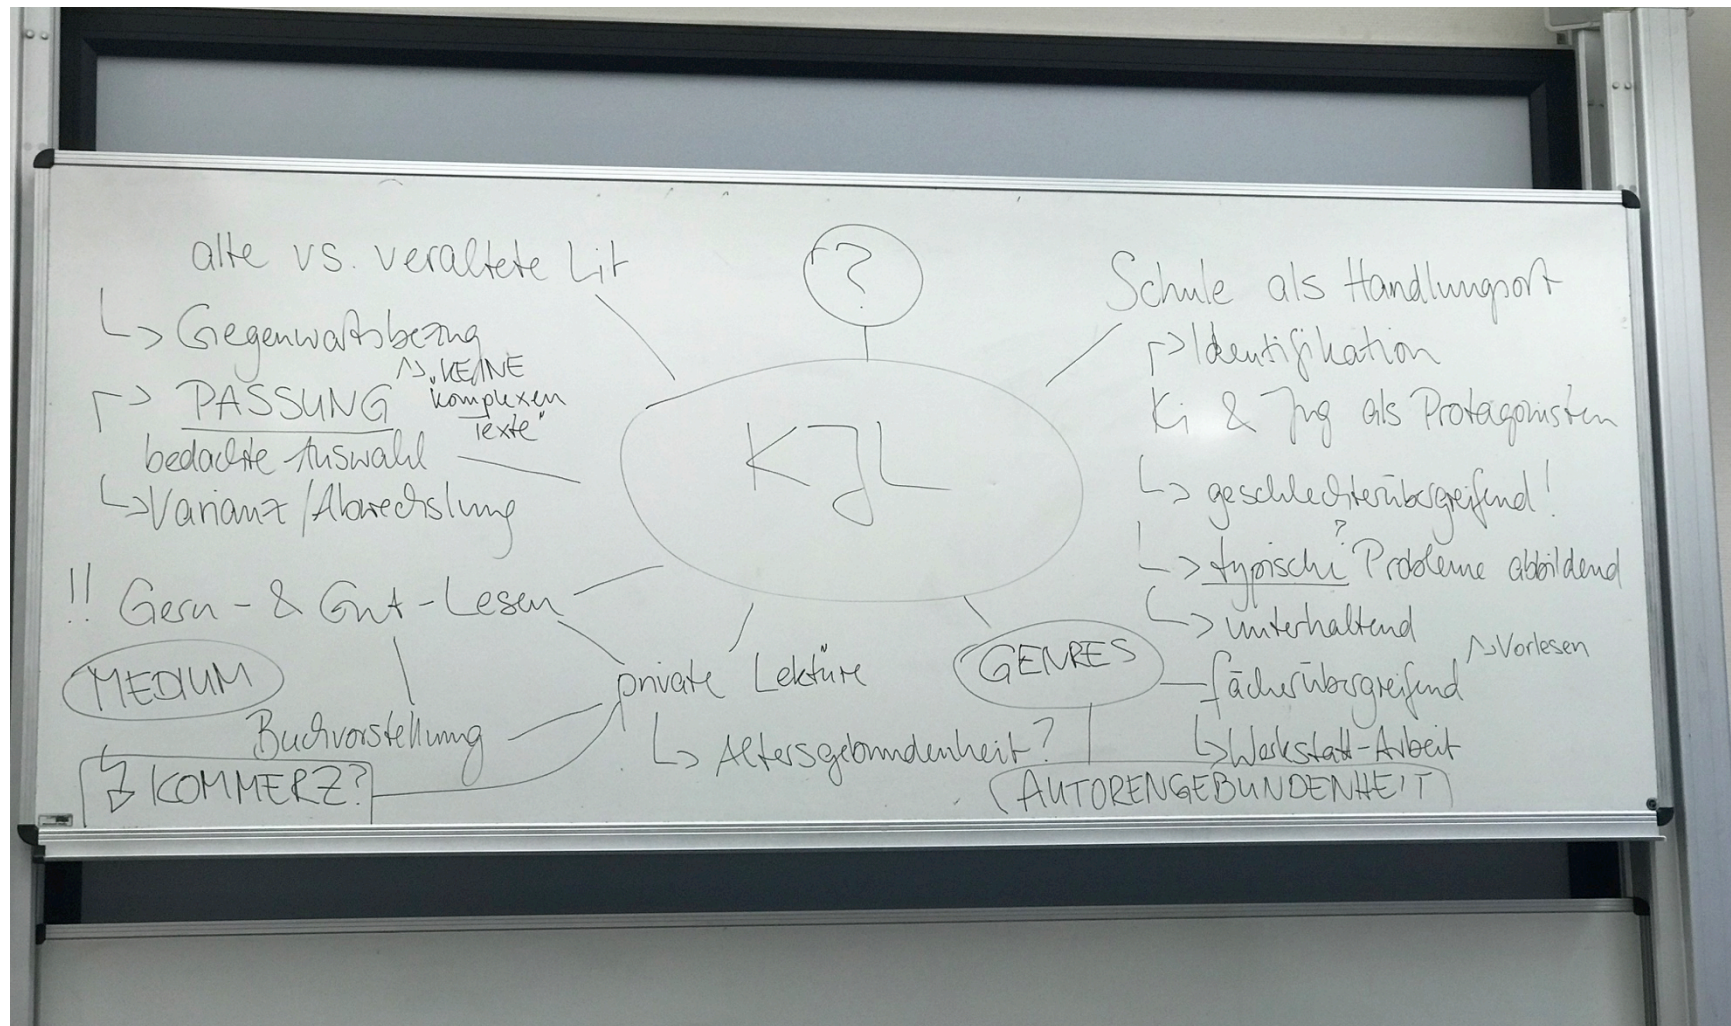 alte vs. veraltete Lit
↳ Gegenwartsbezug
PASSUNG
↝ „KEINE
komplexen
Texte"
bedachte Auswahl
↳ Varianz/Abwechslung
!! Gern- & Gut-Lesen
MEDIUM
Buchvorstellung
KOMMERZ?
?
KJL
private Lektüre
↳ Altersgebundenheit?
GENRES
AUTORENGEBUNDENHEIT
Schule als Handlungsort
Identifikation
Ki & Jug als Protagonisten
↳ geschlechterübergreifend!
?
↳ typische Probleme abbildend
↳ unterhaltend
↝ Vorlesen
fächerübergreifend
↳ Werkstatt-Arbeit